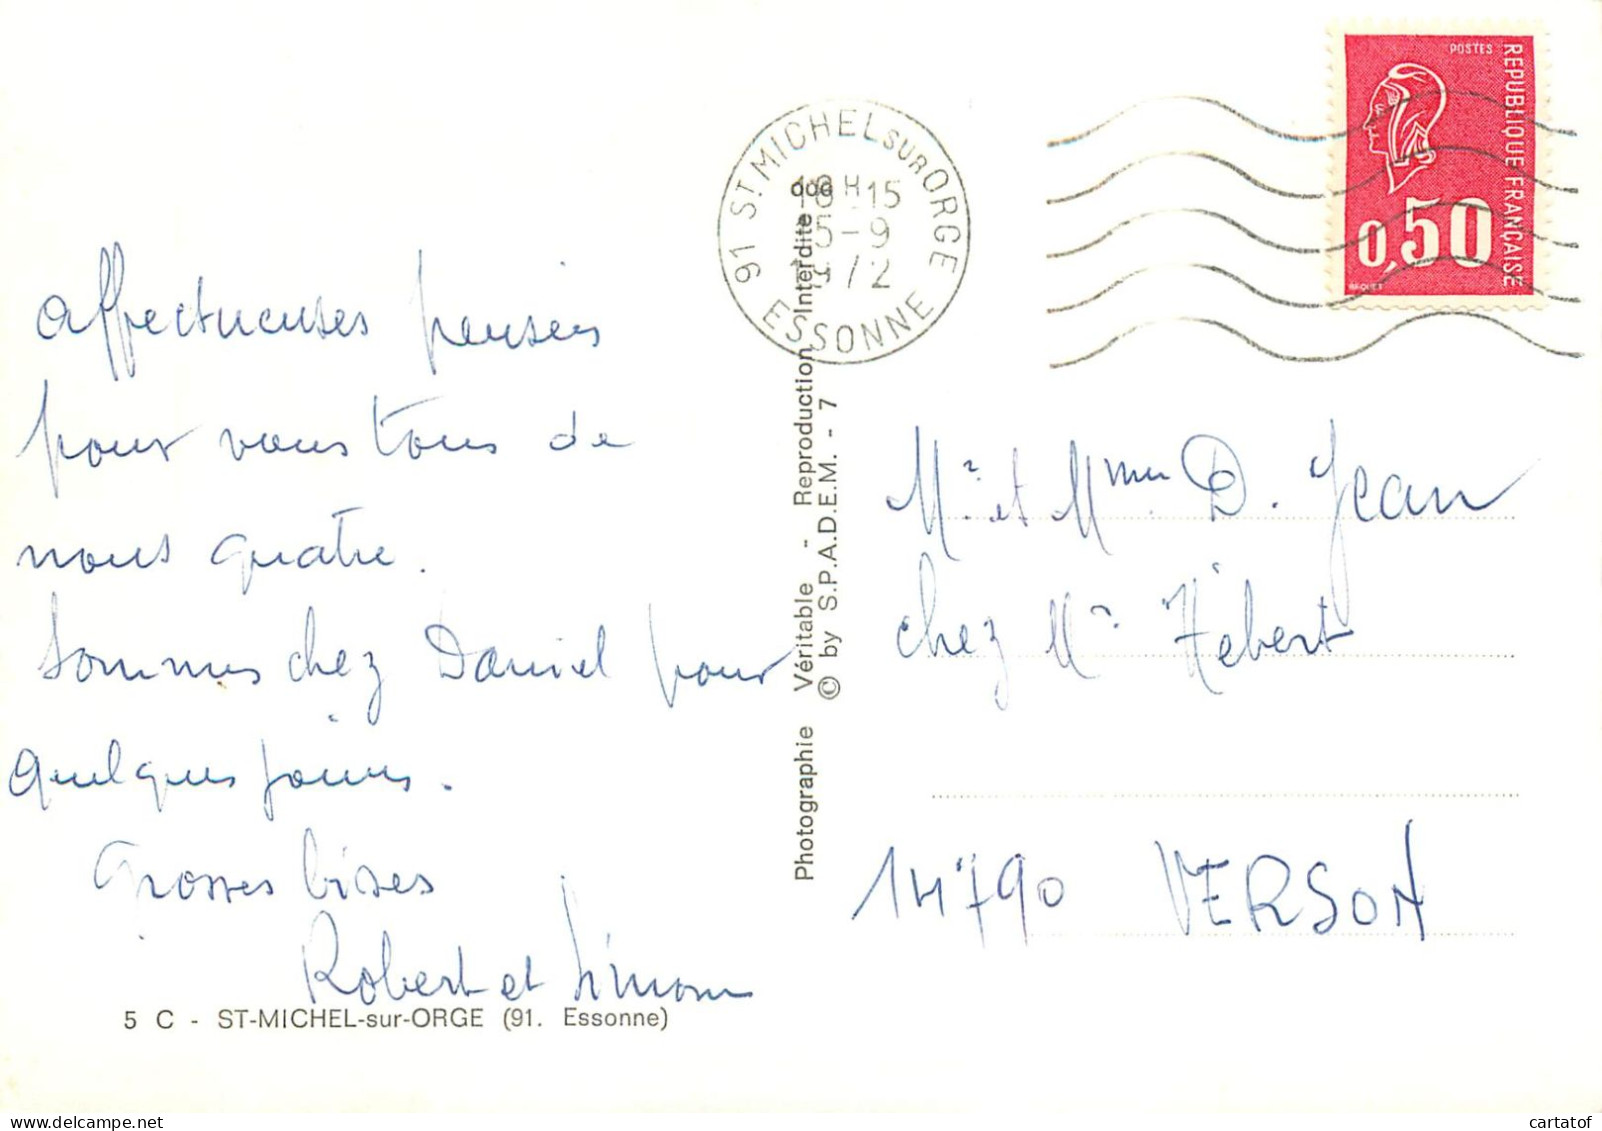 affectueuses pensées
pour vous tous de
nous quatre.
Sommes chez Daniel pour
quelques jours.
Grosses bises
Robert et Simone
5 C - ST-MICHEL-sur-ORGE (91. Essonne)
Photographie Véritable - Reproduction Interdite
© by S.P.A.D.E.M. - 7
91 ST MICHEL SUR ORGE
18H15
15-9
1972
ESSONNE
POSTES
REPUBLIQUE FRANCAISE
0,50
BEQUET
Mr et Mme D. Jean
chez Mr Hébert
14790 VERSON
cartatof